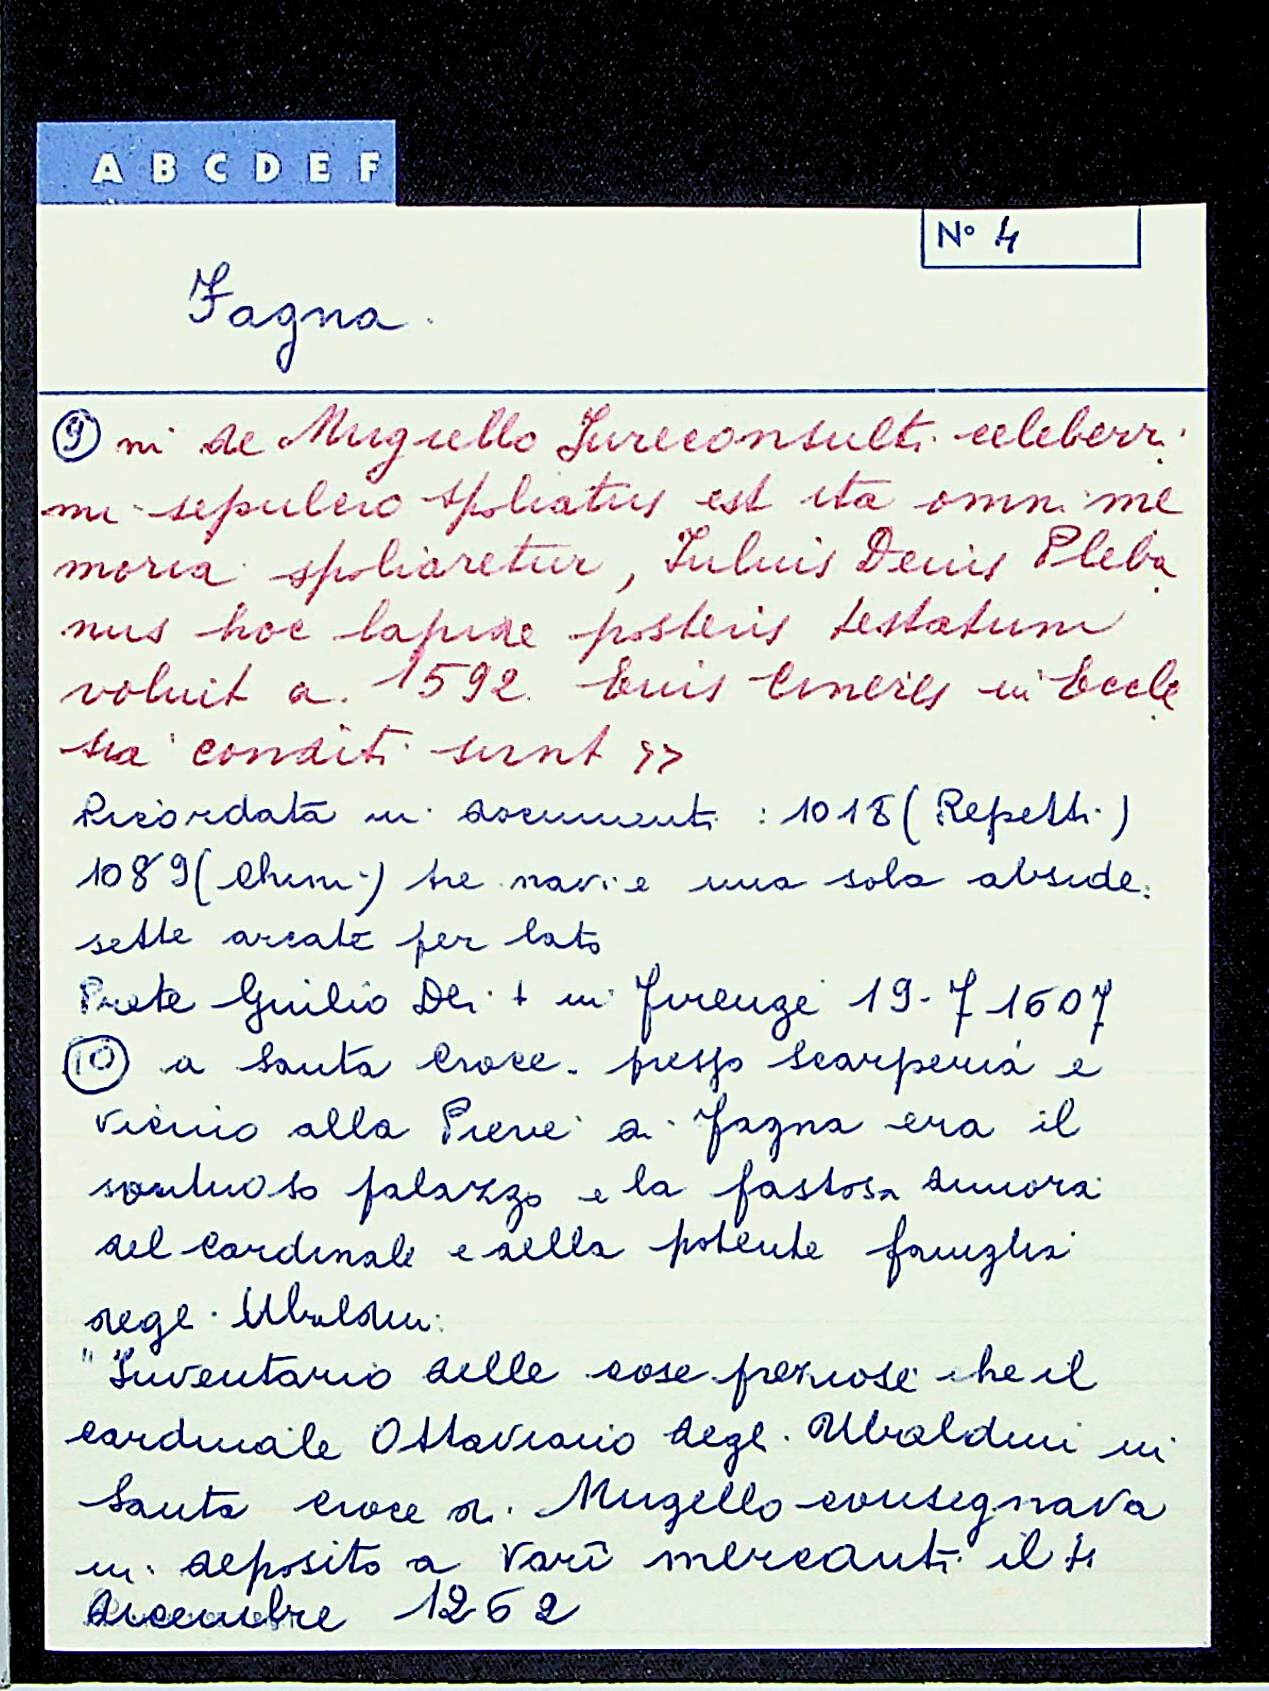 A B C D E F
N° 4
Fagna.
9 ni de Mugiello Jureconsulti celeberri
mi sepulcro spoliatus est ita omni me
moria spoliaretur, Julius Denis Pleba
nus hoc lapide posteris testatum
voluit a. 1592. Euis Cineres in Eccle
sia conditi sunt »
Ricordata in documenti : 1018 (Repetti)
1089 (Chini) tre navi e una sola abside.
sette arcate per lato
Prete Giulio + in Firenze 19-7 1607
10 a Santa Croce. presso Scarperia e
vicino alla Pieve di Fagna era il
sontuoso palazzo e la fastosa dimora
del Cardinale e della potente famiglia
degl. Ubaldini.
"Inventario delle cose preziose che il
cardinale Ottaviano degl. Ubaldini in
Santa Croce di Mugello consegnava
in deposito a varî mercanti il 4
dicembre 1262